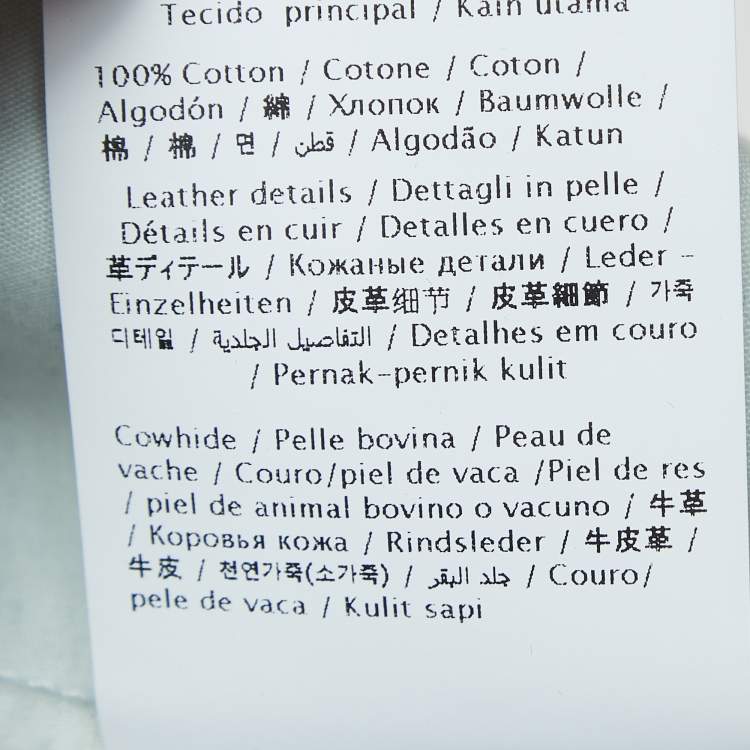 Tecido principal / Kain utama
100% Cotton / Cotone / Coton /
Algodón / 綿 / Хлопок / Baumwolle /
棉 / 棉 / 면 / قطن / Algodão / Katun
Leather details / Dettagli in pelle /
Détails en cuir / Detalles en cuero /
革ディテール / Кожаные детали / Leder -
Einzelheiten / 皮革细节 / 皮革細節 / 가죽
디테일 / التفاصيل الجلدية / Detalhes em couro
/ Pernak-pernik kulit
Cowhide / Pelle bovina / Peau de
vache / Couro/piel de vaca /Piel de res
/ piel de animal bovino o vacuno / 牛革
/ Коровья кожа / Rindsleder / 牛皮革 /
牛皮 / 천연가죽(소가죽) / جلد البقر / Couro/
pele de vaca / Kulit sapi